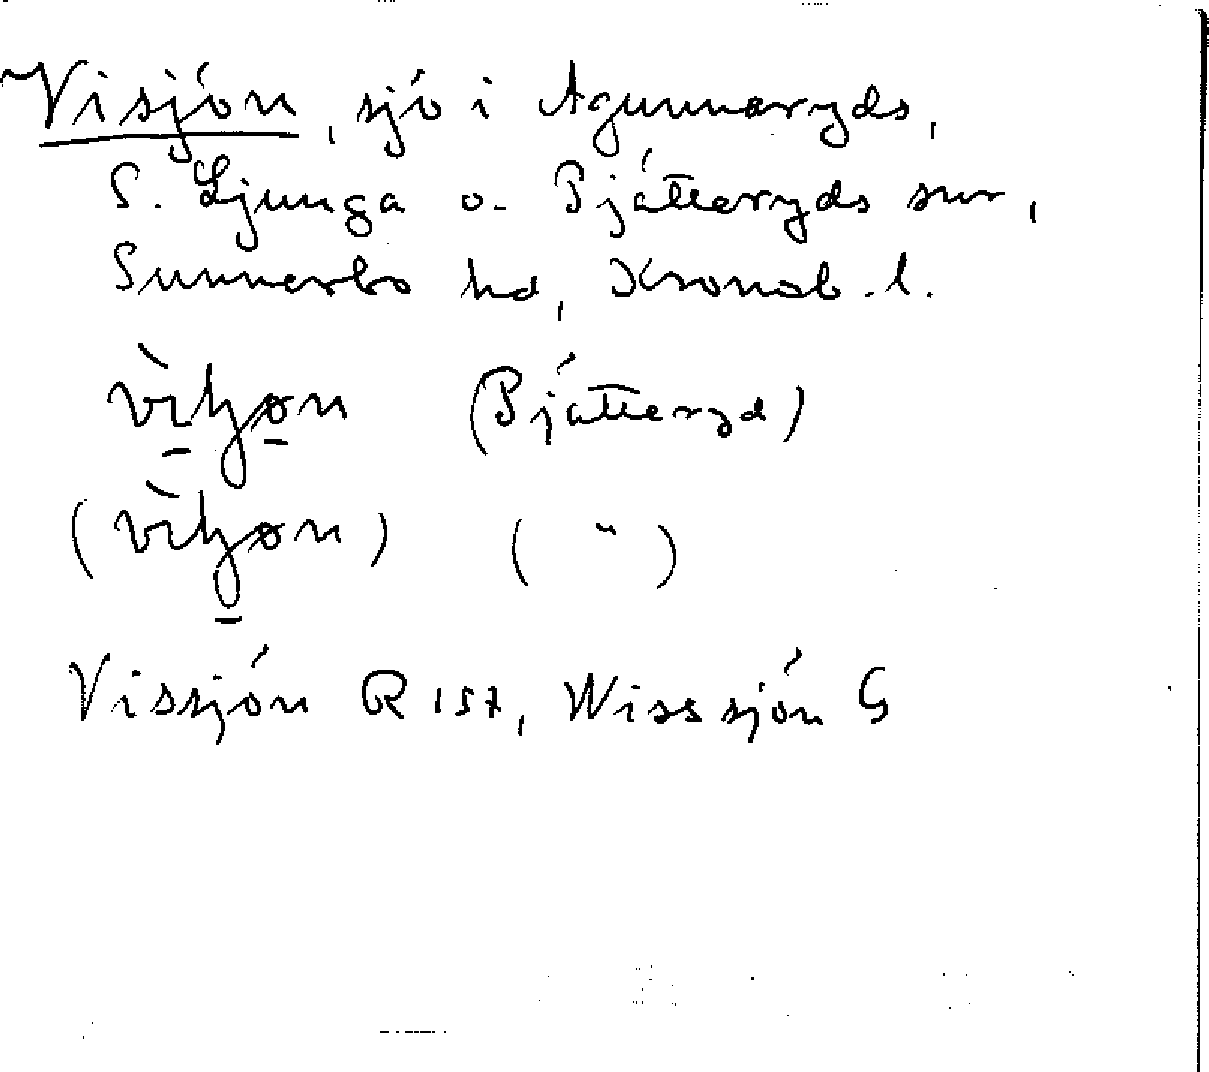 Visjön, sjö i Agunnaryds,
S. Ljunga o. Pjätteryds snr,
Sunnerbo hd, Kronob. l.
(Pjätteryd)
( " )
Vissjön R 157, Wisssjön G